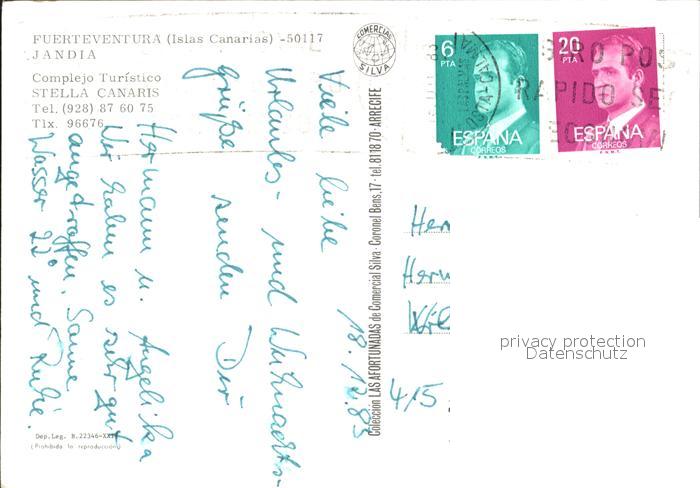 FUERTEVENTURA (Islas Canarias) -50117
JANDIA
Complejo Turístico
STELLA CANARIS
Tel. (928) 87 60 75
Tlx. 96676
COMERCIAL
SILVA
6
PTA
ESPAÑA
CORREOS
20
PTA
ESPAÑA
CORREOS
GIRO POS
RAPIDO SE
18.12.83
Viele liebe
Urlaubs- und Weihnachts-
grüße senden Dir
Hermann u. Angelika
Wir haben es sehr gut
angetroffen. Sonne,
Wasser 22° und Ruhe.
Colección LAS AFORTUNADAS de Comercial Silva - Coronel Bens, 17 - tel. 811870 - ARRECIFE
Her
Herm
4/5
privacy protection
Datenschutz
Dep. Leg. B. 22346-XXIV
(Prohibida la reproducción)